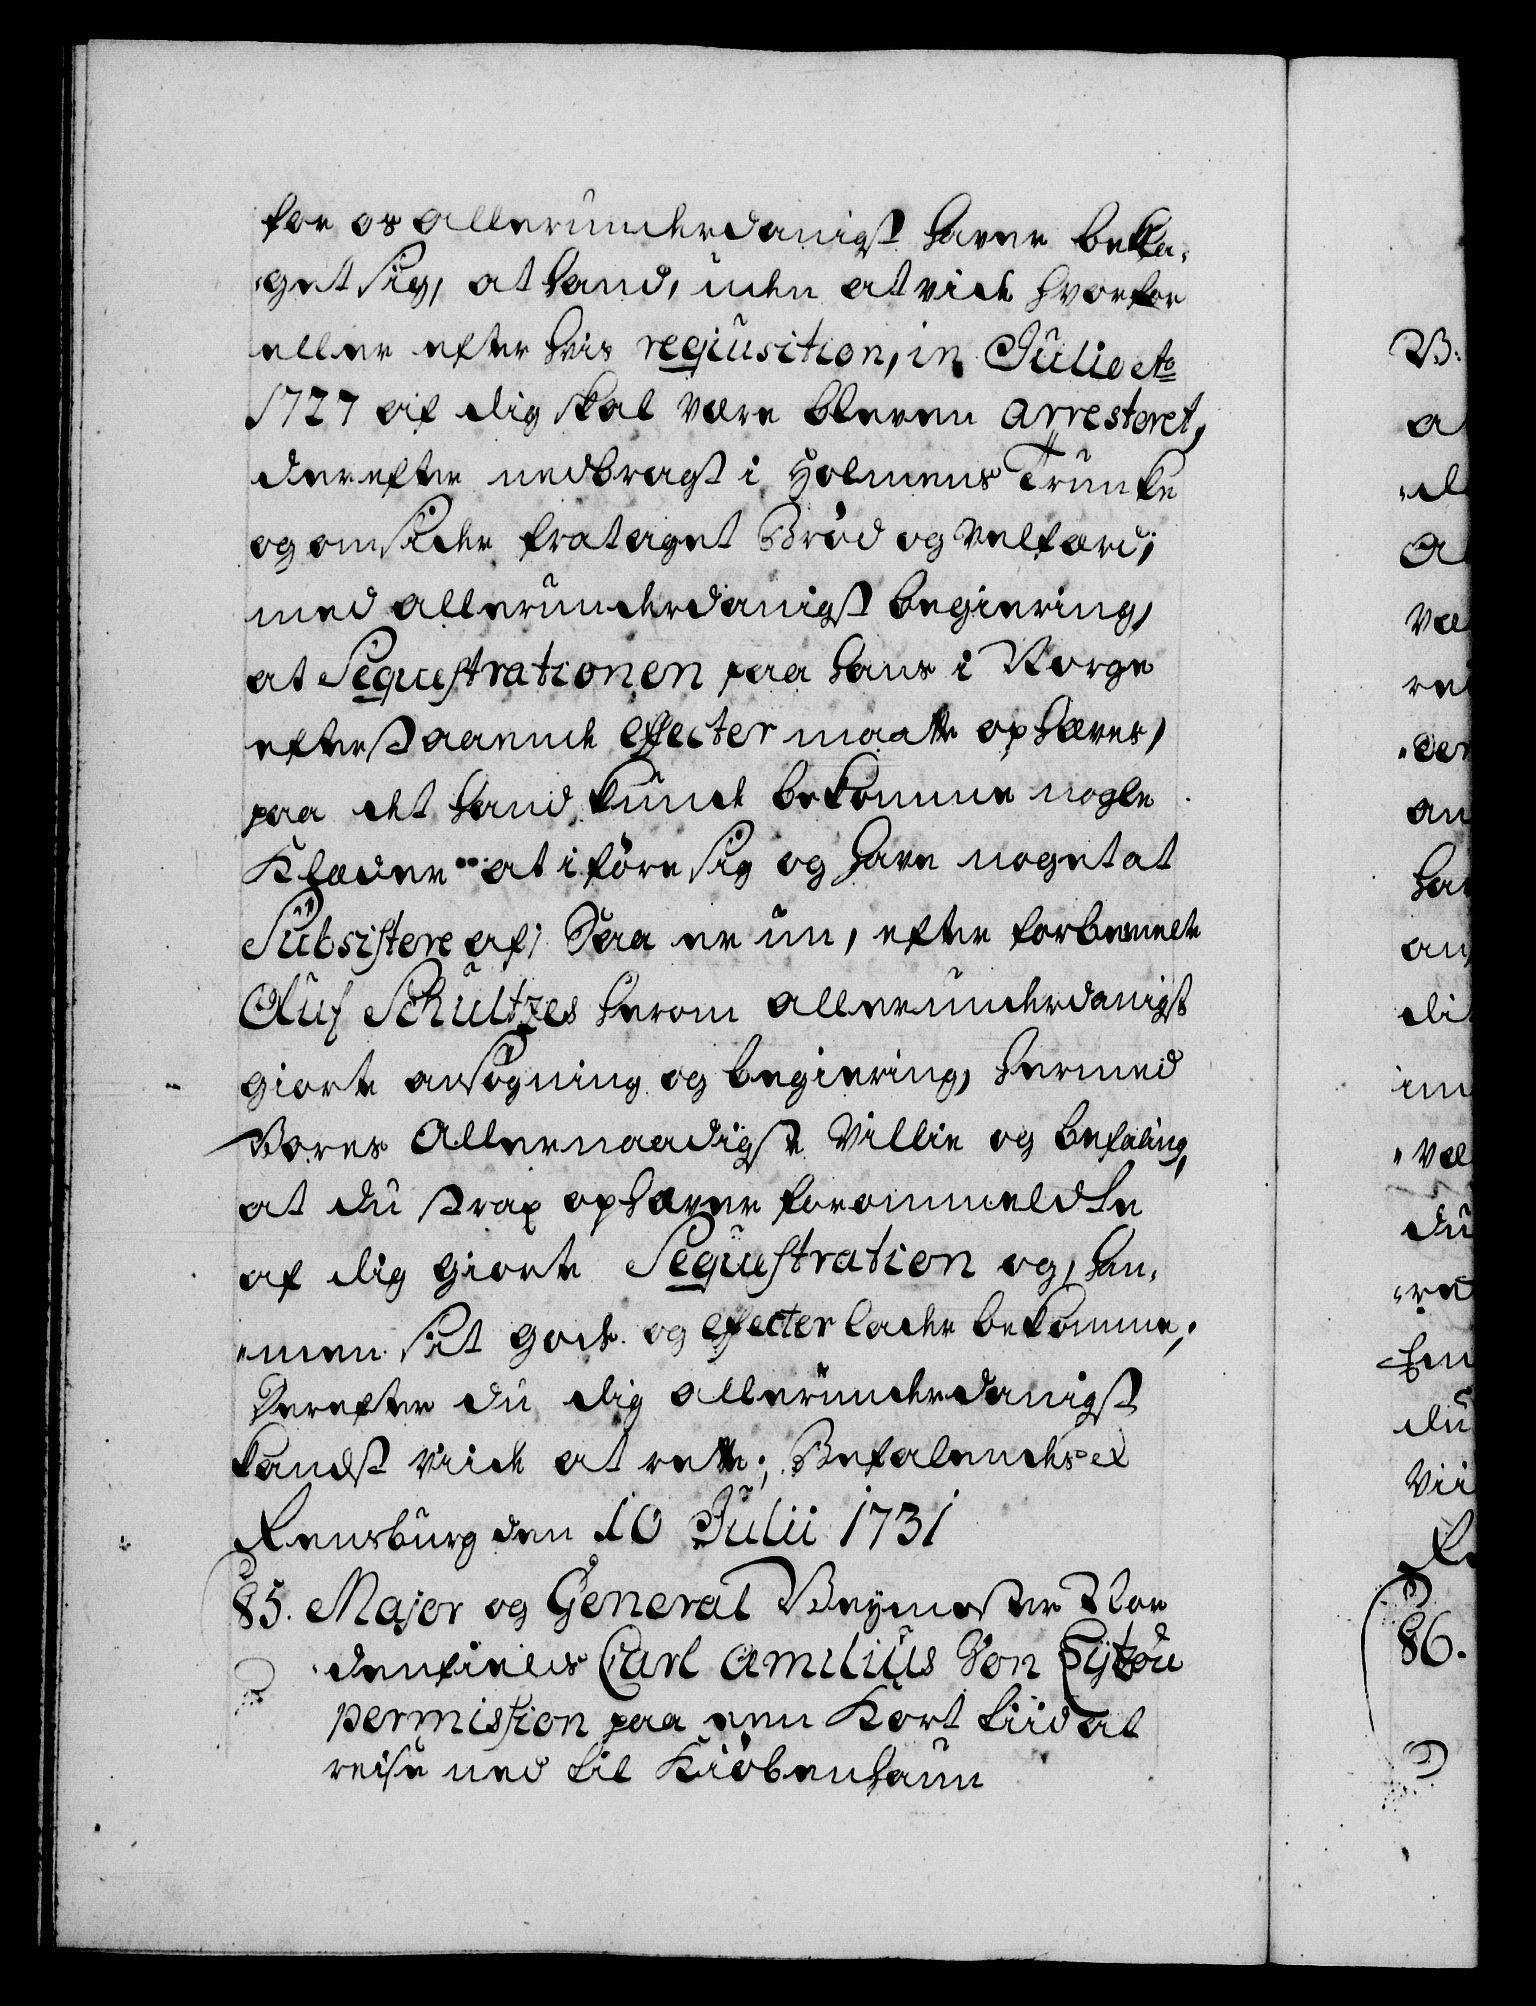 for os allerunderdanigst haver bekla-
-get sig, at hand, uden at vide hvorfor
eller efter hvis reqiusition, in Julio Ao
1727 af dig skal være bleven arresteret,
derefter nedbragt i Holmens Trunke
og omsider frataget Brød og Velfærd;
med allerunderdanigst begiering,
at Sequestrationen paa hans i Norge
efterstaaende effecter maatte ophæves,
paa det hand kunde bekomme nogle
Klæder at iføre sig og have noget at
Subsistere af; Saa er nu, efter forbemelte
Oluf Schultzes herom allerunderdanigst
giorte ansøgning og begiering, hermed
Vores Allernaadigste Villie og befaling,
at du strax ophæver forommeldte
af dig giorte Sequestration og, ham
sit gods og effecter lader bekomme;
Derefter du dig allerunderdanigst
kandst viide at rette; Befalendes etc
Rensburg den 10 Julii 1731
85. Major og General Veymester Nor
denfields Carl Æmilius Von
permission paa een Kort tiid at
reise ned til Kiøbenhaun
B:
a
væ
an
du
Vii
86.